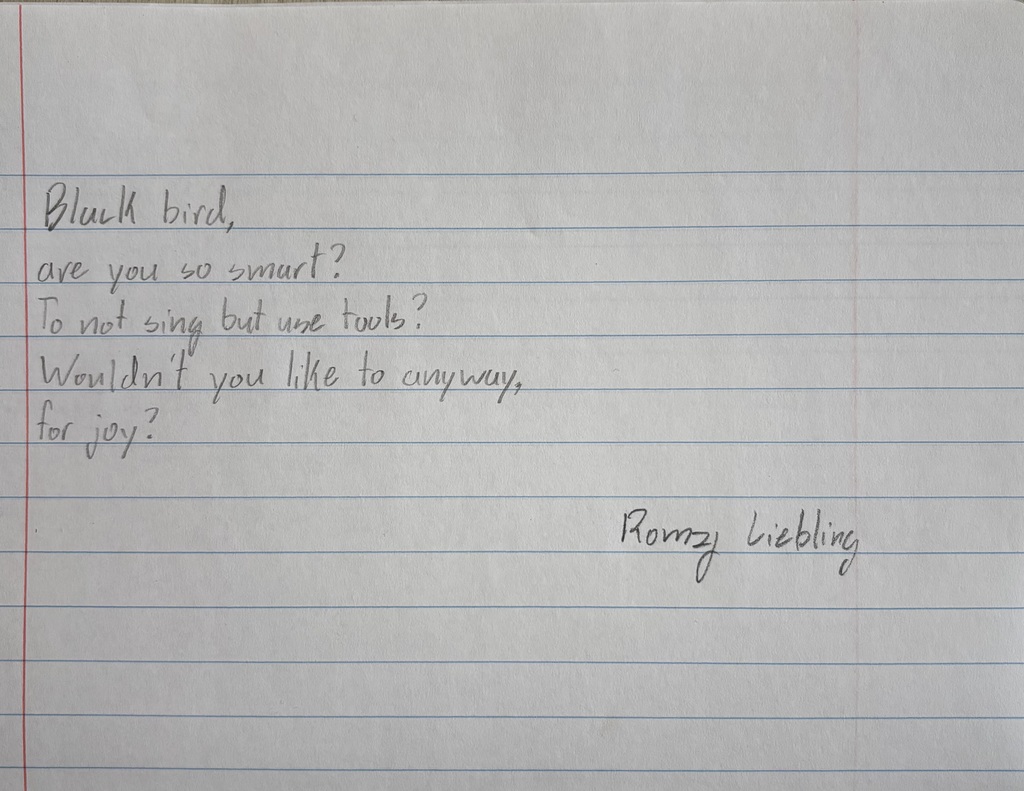 Black bird,
are you so smart?
To not sing but use tools?
Wouldn't you like to anyway,
for joy?
Romzy Liebling